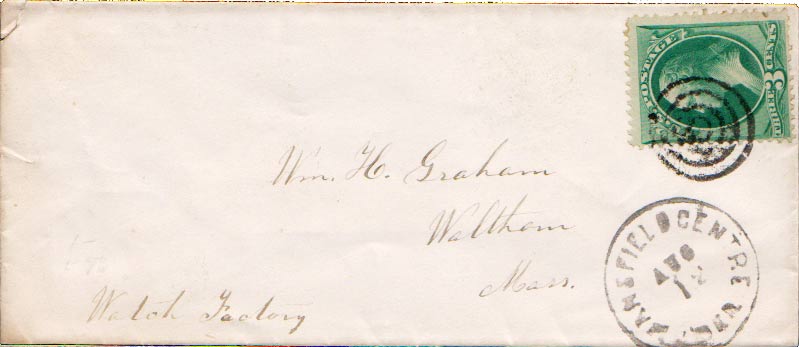 POSTAGE
3 CENTS
Wm. H. Graham
Waltham
Mass.
Watch Factory
MANSFIELD CENTRE
AUG
12